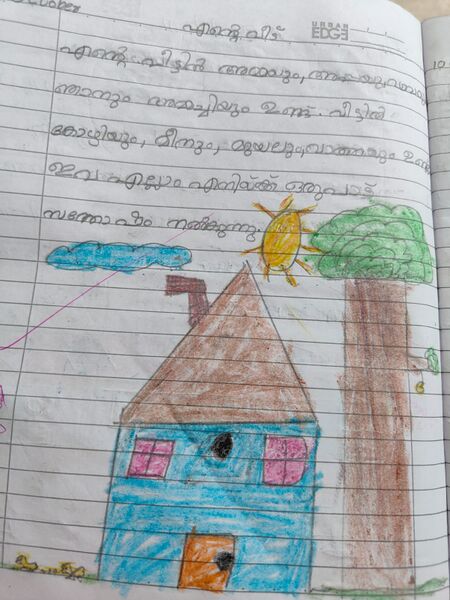 എന്റെ വീട്
URBAN
EDGE
എന്റെ വീട്ടിൽ അമ്മയും,
ഞാനും അമ്മച്ചിയും ഉണ്ട്. വീട്ടിൽ
കോഴിയും, മീനും, മുയലും,
ഇവ എല്ലാം എനിയ്ക്ക് ഒരുപാട്
സന്തോഷം നൽകുന്നു.
10